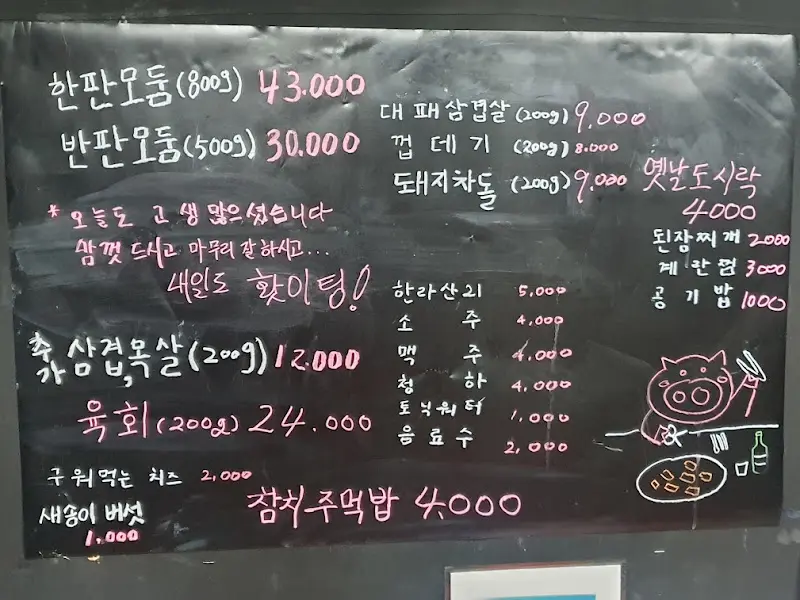 한판모둠(800g) 43.000
반판모둠(500g) 30.000
* 오늘도 고생 많으셨습니다
맘껏 드시고 마무리 잘 하시고...
내일도 홧이팅!
추가 삼겹,목살(200g) 12.000
육회(200g) 24.000
구워먹는 치즈 2,000
새송이 버섯
1.000
참치주먹밥 4.000
대패삼겹살(200g) 9.000
껍데기 (200g) 8.000
돼지차돌 (200g) 9.000
옛날도시락
4000
된잠찌개 2000
계란찜 3000
공기밥 1000
한라산21 5,000
소주 4,000
맥주 4,000
청하 4,000
토닉워터 1,000
음료수 2,000